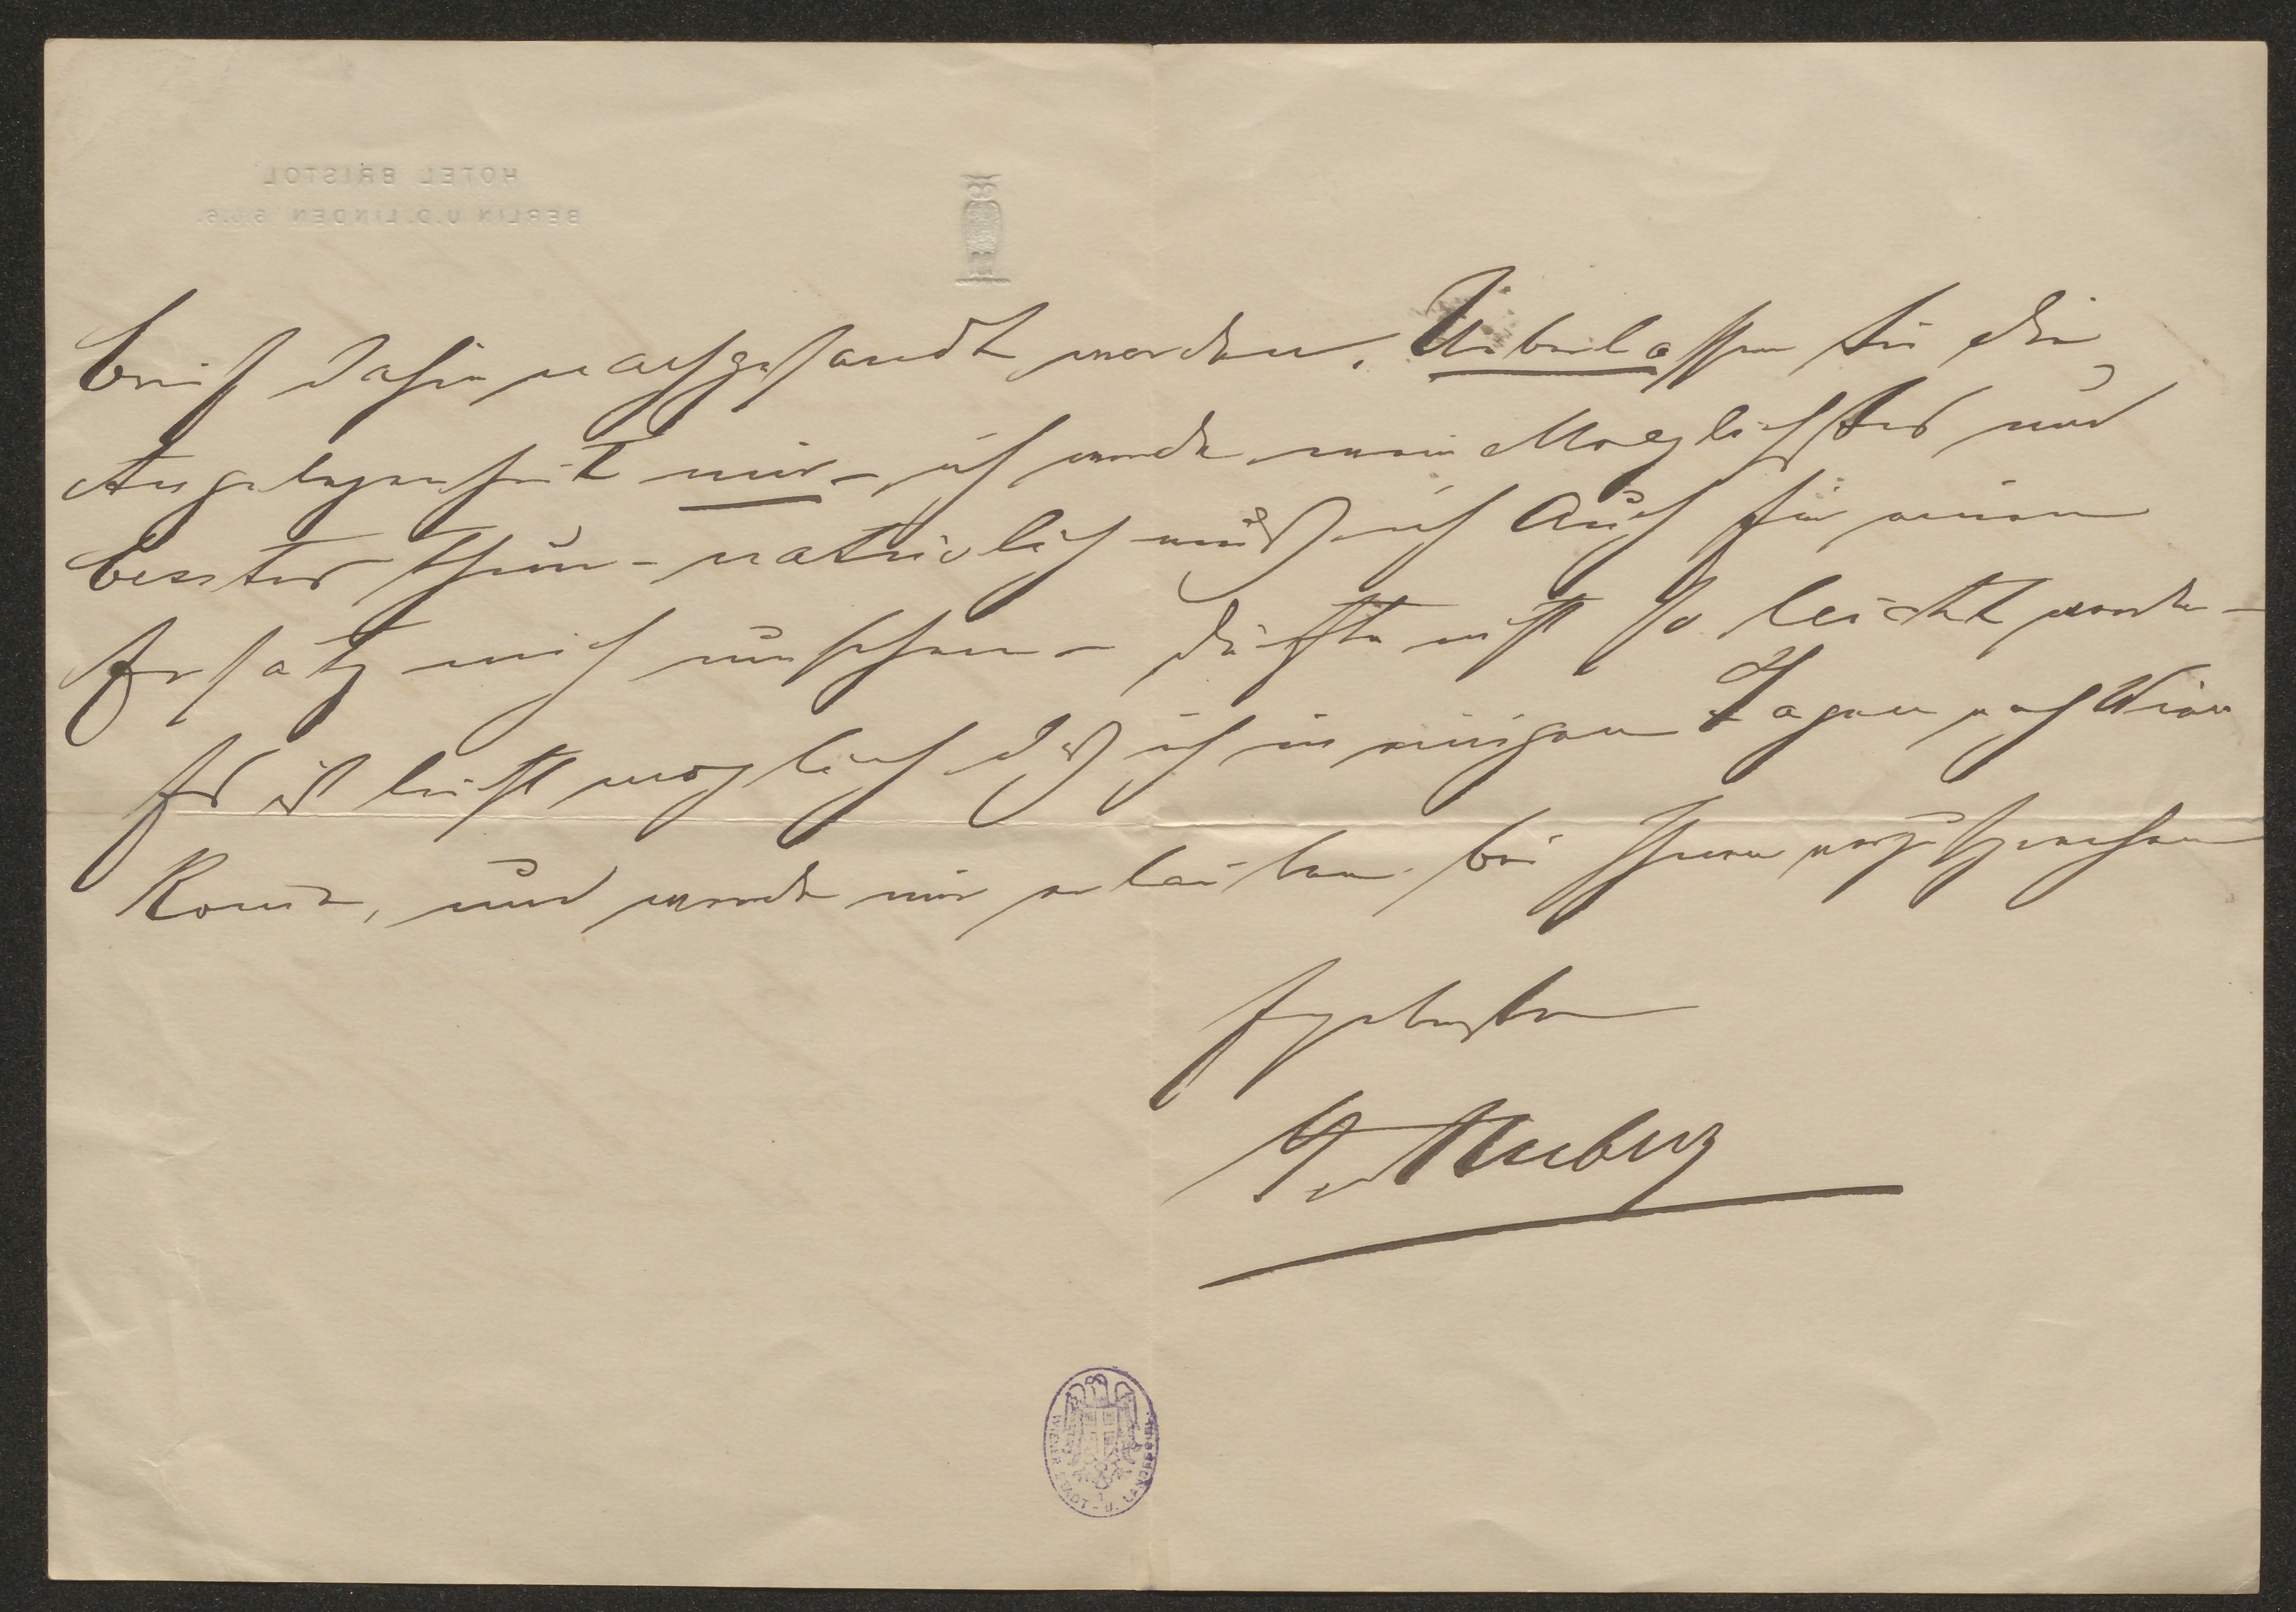 HOTEL BRISTOL
BERLIN U.D. LINDEN 5.u.6.
Brief dahin nachgesandt werden. Überlassen Sie die
Angelegenheit mir – ich werde mein Moeglichstes und
bestes thun – natürlich muß ich auch für einen
Ersatz mich umsehen – dürfte nicht so leicht werden –
Es ist leicht möglich daß ich in einigen Tagen nach Wien
komme, und werde mir erlauben bei Ihnen vorzusprechen
Ergebenster
WIENER STADT- U. LANDESBIBL.